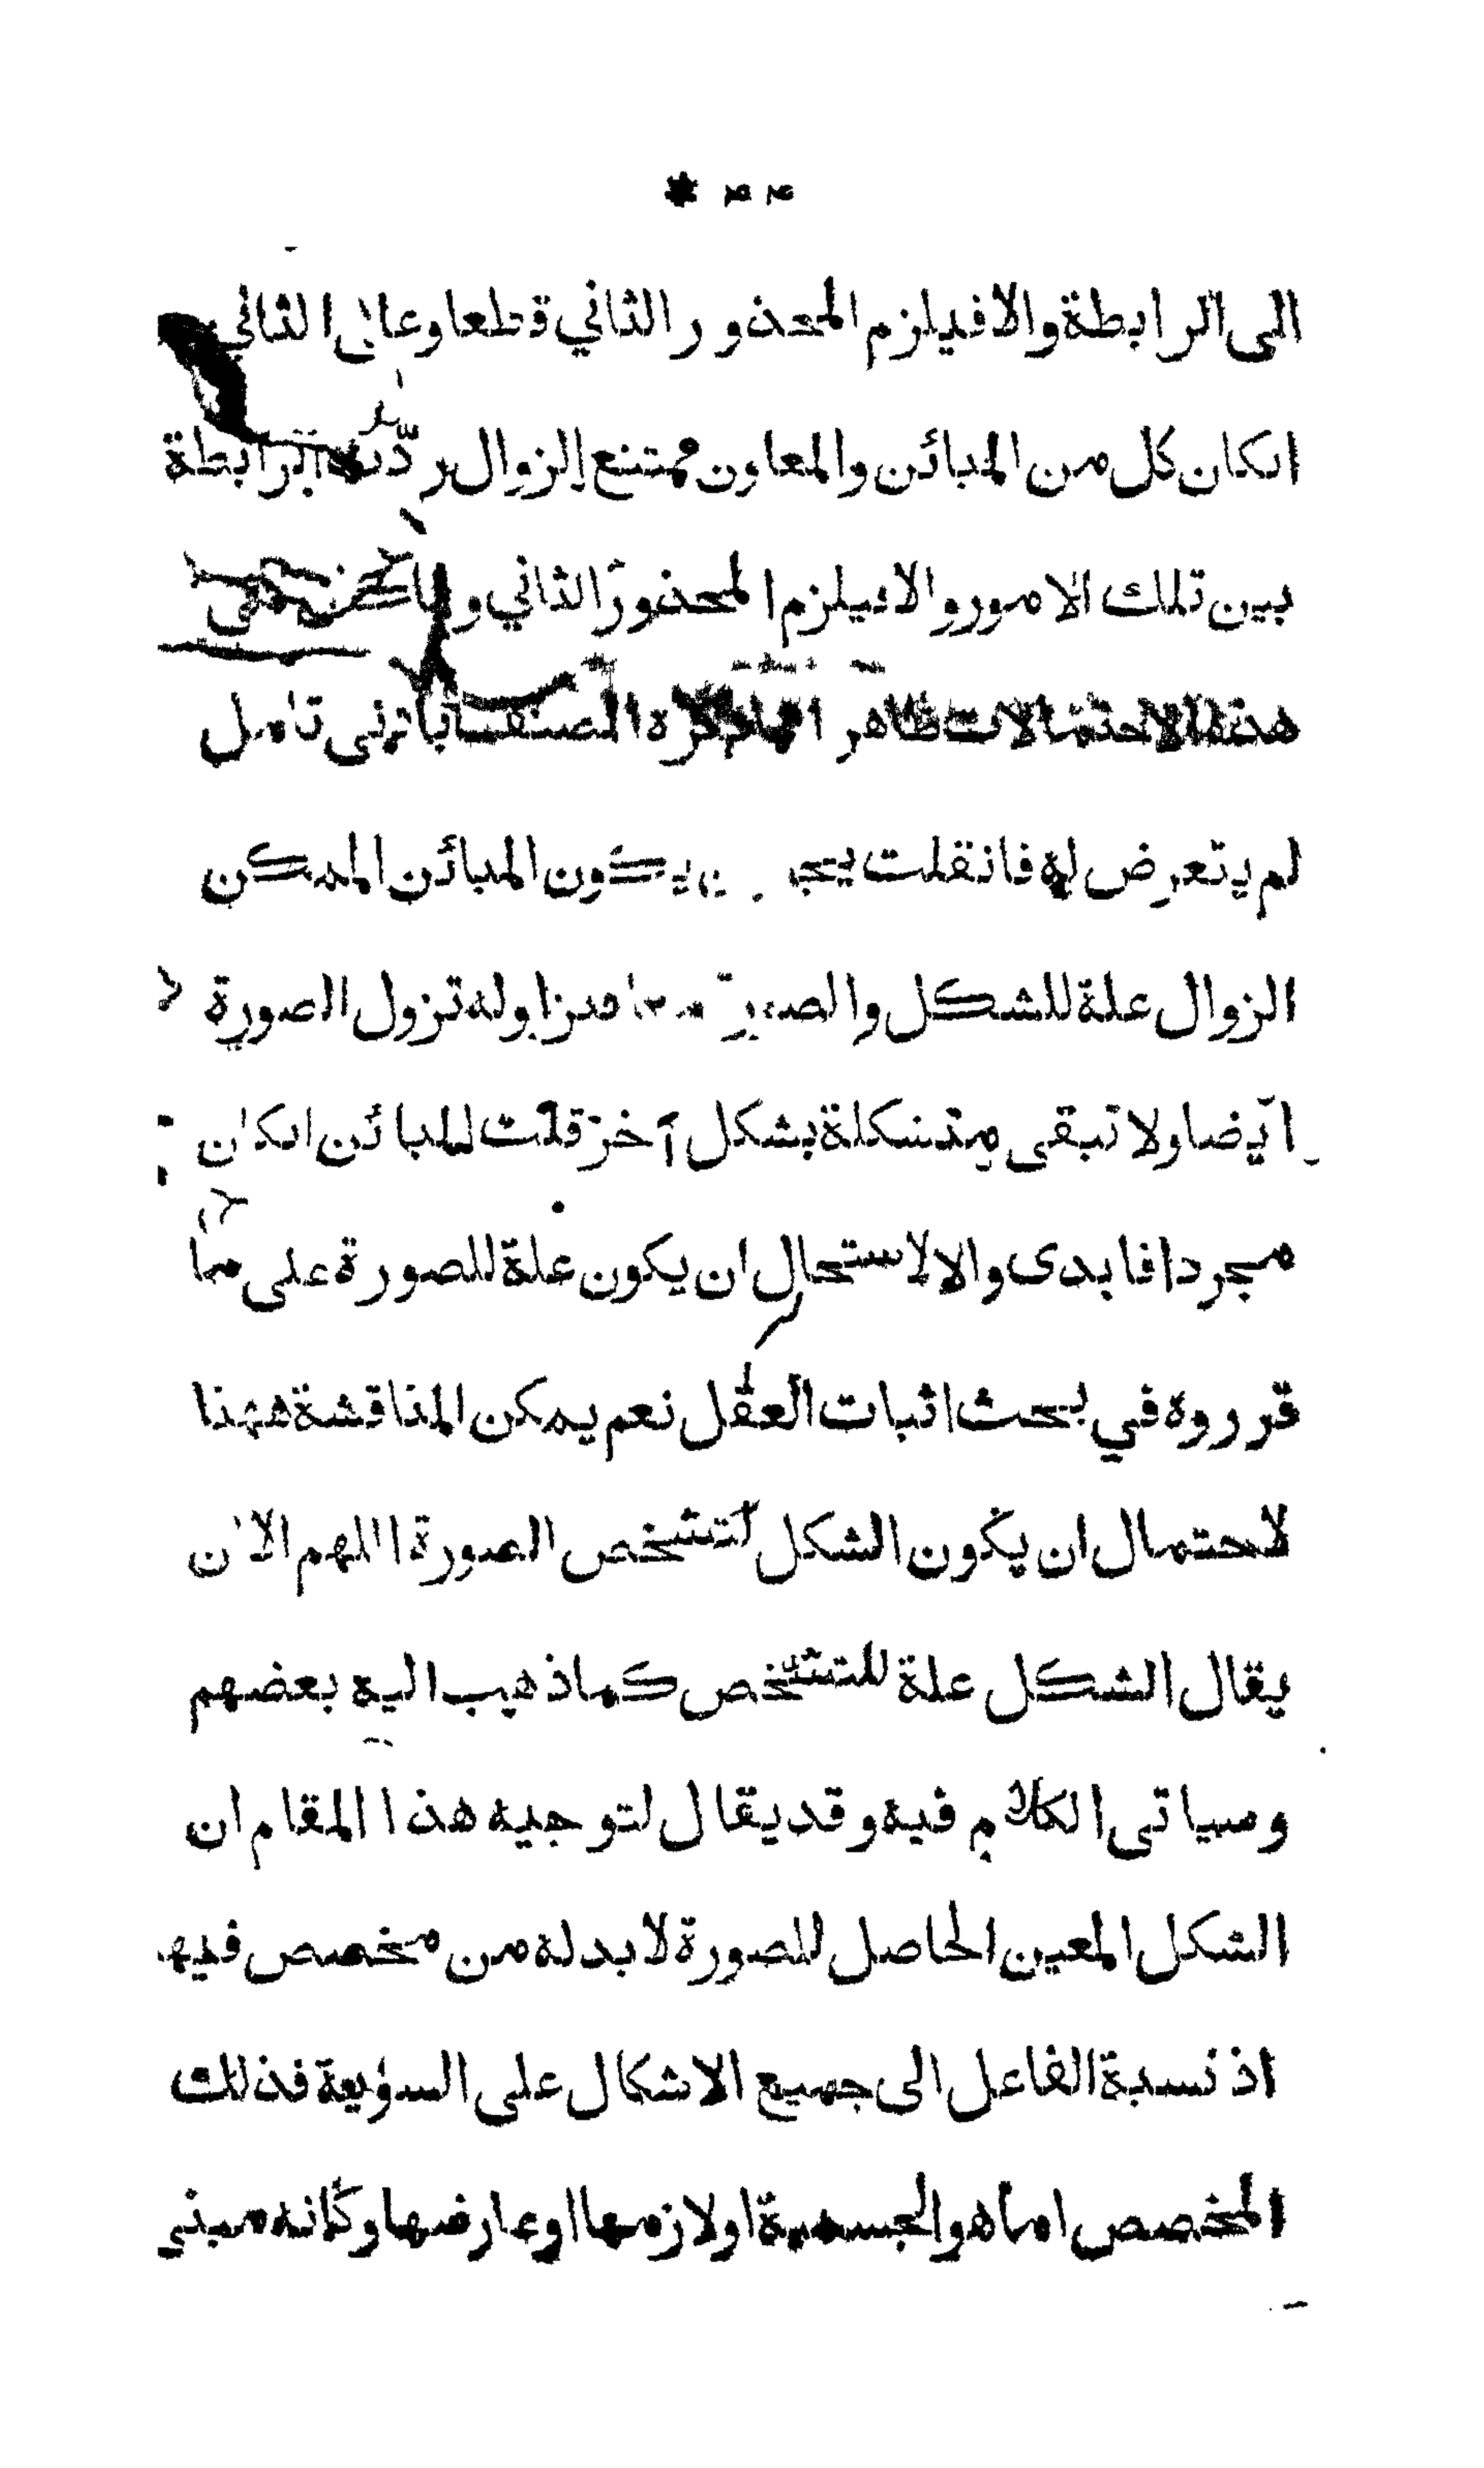 الى الرابطة والا فيلزم المحذور الثاني قطعا وعلى الثاني
انكان كل من المبائن والمعاون ممتنع الزوال الرابطة
بين تلك الامور والا فيلزم المحذور الثاني و
هذه الاحتمالات ظاهر ذكره المصنف بادنى تامل
لم يتعرض له فان قلت يكون المبائن الممكن
الزوال علة للشكل و فبزواله تزول الصورة
ايضا ولا تبقى متشكلة بشكل آخر قلت المبائن انكان
مجردا فابدى والا لاستحال ان يكون علة للصورة على ما
قرروه في بحث اثبات العقل نعم يمكن المناقشة ههنا
لاحتمال ان يكون الشكل لتشخص الصورة اللهم الا ان
يقال الشكل علة للتشخص كما ذهب اليه بعضهم
وسياتى الكلام فيه وقد يقال لتوجيه هذا المقام ان
الشكل المعين الحاصل للصورة لا بد له من مخصص فيها
اذ نسبة الفاعل الى جميع الاشكال على السوية فذلك
المخصص اما هو الجسمية او لازمها او عارضها وكانه مبني